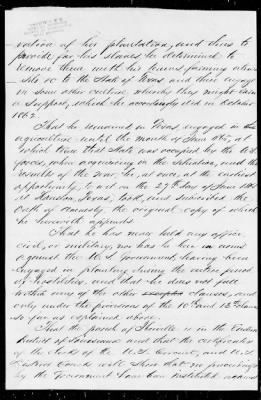 vation of her plantation, and thus to
provide for his slaves he determined to
remove them with his teams farming utensils
&c to the State of Texas and there engage
in some other culture, whereby they might earn
a support, which he accordingly did in October
1862.
That he remained in Texas, engaged in
agriculture until the month of June 1865, at
which time that State was occupied by the U.S.
forces, when acquiescing in the situation, and the
results of the war, he, at once, at the earliest
opportunity, to wit on the 27th day of June 1865
at Houston, Texas, took, and subscribed the
Oath of Amnesty, the original copy of which
is herewith appended
That he has never held any office
civil, or military, nor has he been in arms
against the U.S. Government, having been
engaged in planting during the entire period
of hostilities, and that he does not fall
within any of the other clauses, and
only under the provisions of the 10th and 13th clauses
so far as explained above.
That the parish of is in the Eastern
District of Louisiana and that the certificates
of the clerks of the U.S. Circuit, and U.S.
District Courts will show that no proceedings
by the Government have been instituted against